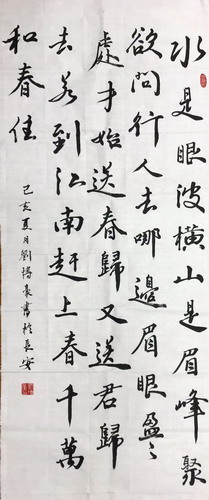 水是眼波横山是眉峰聚
欲问行人去哪邊眉眼盈〻
處才始送春歸又送君歸
去若到江南赶上春千萬
和春住
己亥夏月劉揚袁書於長安